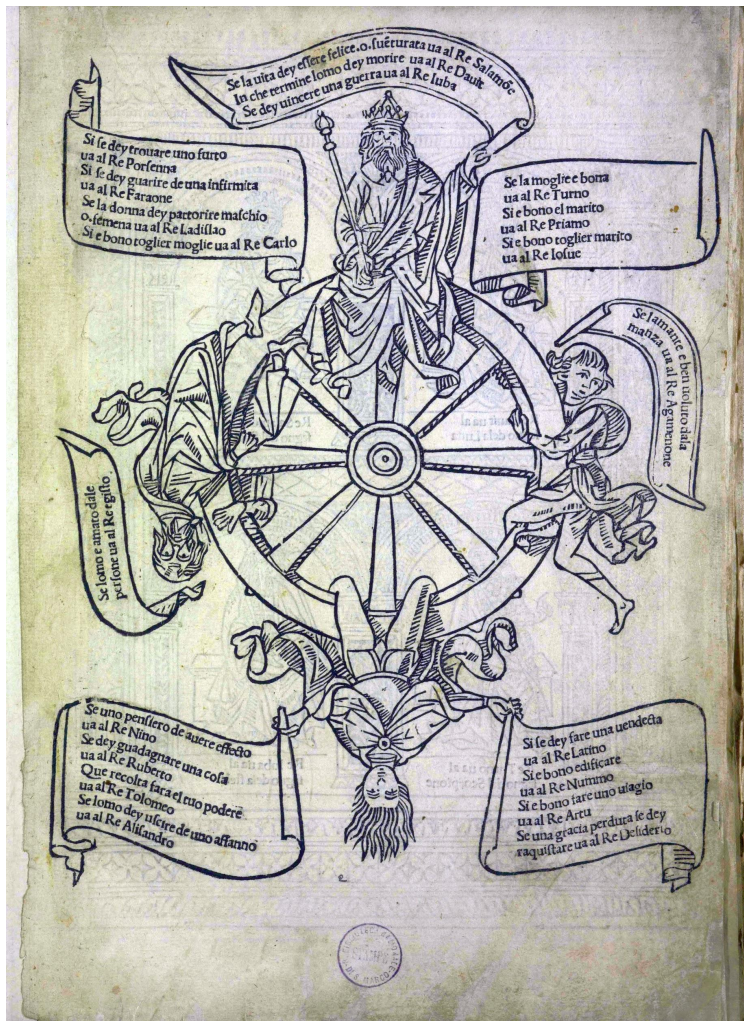 Se la uita dey essere felice .o. suẽturata ua al Re Salamõe
In che termine lomo dey morire ua al Re Dauit
Se dey uincere una guerra ua al Re Iuba
Si se dey trouare uno furto
ua al Re Porsenna
Si se dey guarire de una infirmita
ua al Re Faraone
Se la donna dey partorire maschio
o. femena ua al Re Ladislao
Si e bono toglier moglie ua al Re Carlo
Se la moglie e bona
ua al Re Turno
Si e bono el marito
ua al Re Priamo
Si e bono toglier marito
ua al Re Iosue
Se lamante e ben uoluto dala
manza ua al Re Agamenone
Se lomo e amato dale
persone ua al Re egisto
Se uno pensiero de auere effecto
ua al Re Nino
Se dey guadagnare una cosa
ua al Re Ruberto
Que recolta fara el tuo podere
ua al Re Tolomeo
Se lomo dey uscire de uno affanno
ua al Re Alisandro
Si se dey fare una uendecta
ua al Re Latino
Si e bono edificare
ua al Re Nummo
Si e bono fare uno uiagio
ua al Re Artu
Se una gracia perduta se dey
raquistare ua al Re Desiderio